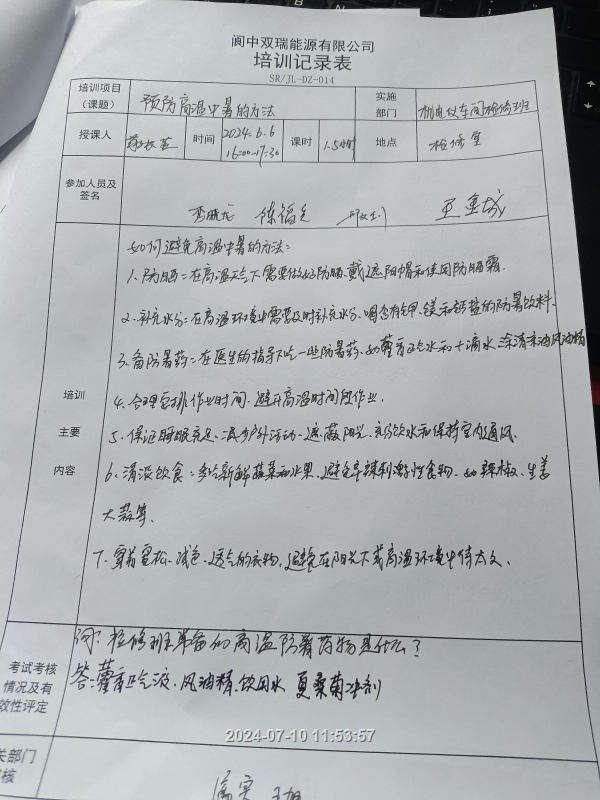 阆中双瑞能源有限公司
培训记录表
SR/JL-DZ-014
培训项目（课题） 预防高温中暑的方法 实施部门 机电仪车间检修班
授课人 时间 2024.6.6 16:00-17:30 课时 1.5小时 地点 检修室
参加人员及签名 李晓龙 王金城
培训主要内容
如何避免高温中暑的方法：
1、防晒：在高温天气下需要做好防晒、戴遮阳帽和使用防晒霜.
2、补充水分：在高温环境中需要及时补充水分、喝含有钾、镁和钙盐的防暑饮料.
3、备防暑药：在医生的指导下吃一些防暑药、如藿香正气水和十滴水、涂清凉油风油精
4、合理安排作业时间、避开高温时间段作业.
5、保证睡眠充足、减少户外活动、遮蔽阳光、充分饮水和保持室内通风.
6、清淡饮食：多吃新鲜蔬菜和水果、避免辛辣刺激性食物、如辣椒、生姜
大蒜等.
7、穿着宽松、浅色、透气的衣物、避免在阳光下或高温环境中待太久.
考试考核情况及有效性评定
问：检修班准备的高温防暑药物是什么？
答：藿香正气液、风油精、饮用水 夏桑菊冲剂
关部门
核
2024-07-10 11:53:57